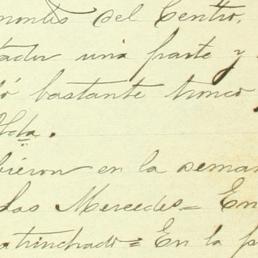 montes del Centro,
tador una parte y
ó bastante tronco
Hda.
bieron en la semana
Las Mercedes = En
atrinchado = En la p